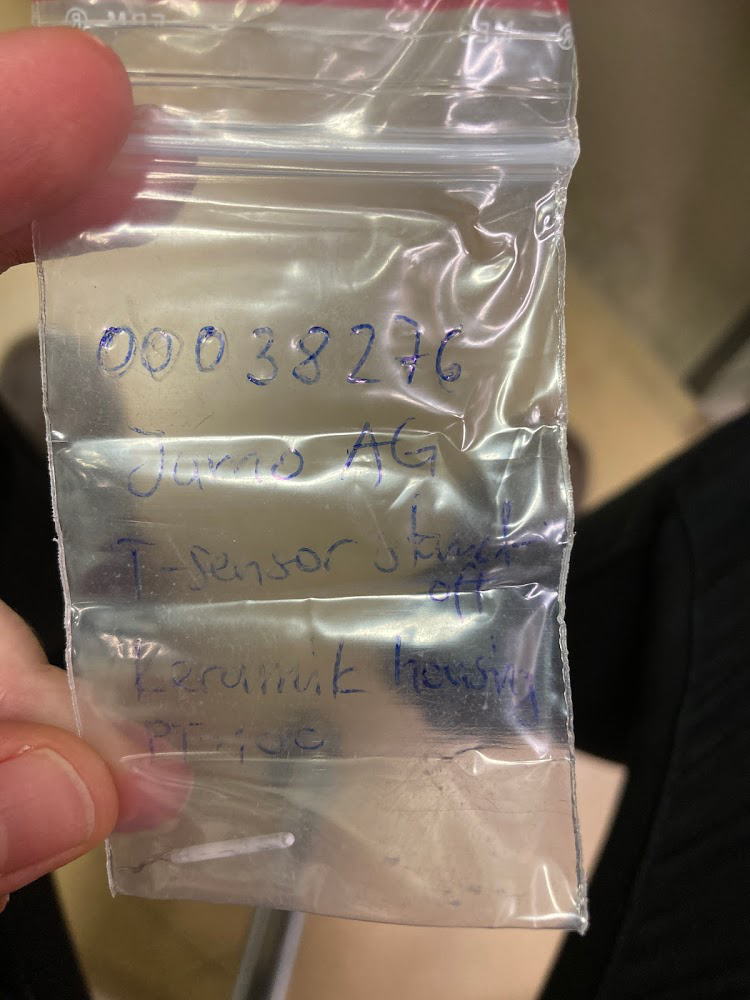 00038276
Jumo AG
T-sensor
off
Keramik housing
PT-100